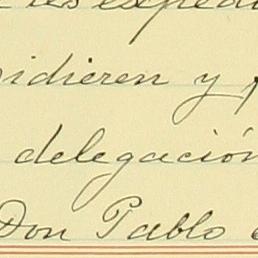 les expedi
pidieren y p
delegación
Don Pablo